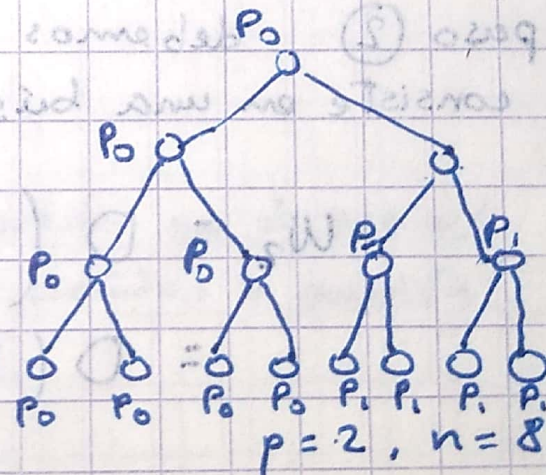 P0
P0
P0 P0 P1 P1
P0 P0 P0 P0 P1 P1 P1 P1
p = 2, n = 8